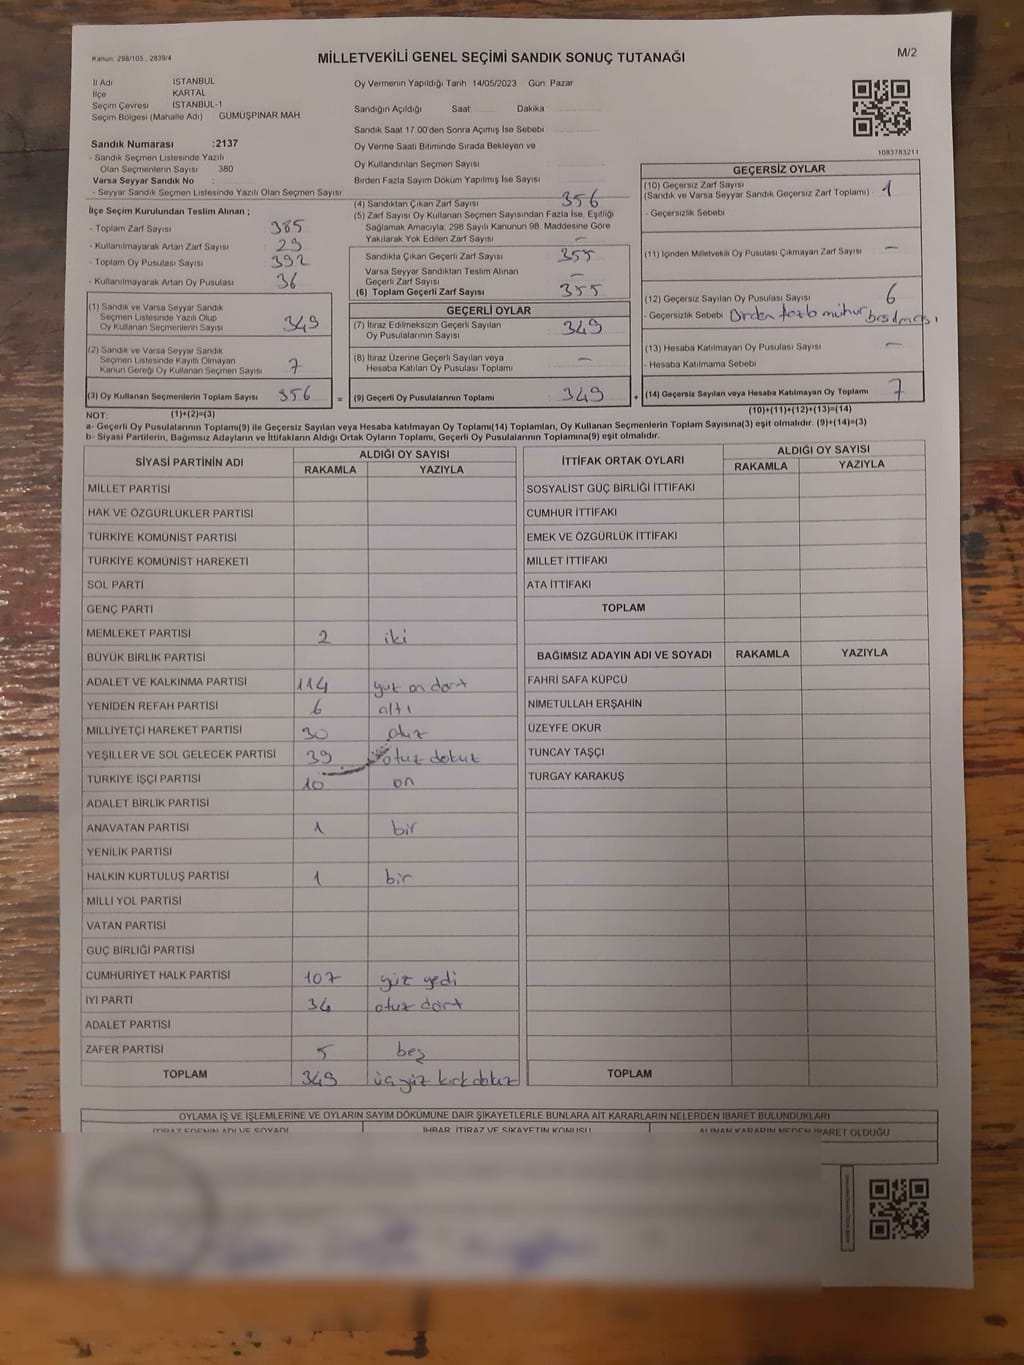 Kanun: 298/105 , 2839/4
MİLLETVEKİLİ GENEL SEÇİMİ SANDIK SONUÇ TUTANAĞI
M/2
İl Adı İSTANBUL
İlçe KARTAL
Seçim Çevresi İSTANBUL-1
Seçim Bölgesi (Mahalle Adı) GÜMÜŞPINAR MAH.
Oy Vermenin Yapıldığı Tarih 14/05/2023 Gün: Pazar
Sandığın Açıldığı Saat Dakika
Sandık Saat 17.00'den Sonra Açımış İse Sebebi
Oy Verme Saati Bitiminde Sırada Bekleyen ve
Oy Kullandırılan Seçmen Sayısı
Birden Fazla Sayım Döküm Yapılmış İse Sayısı
1083783211
Sandık Numarası :2137
- Sandık Seçmen Listesinde Yazılı
Olan Seçmenlerin Sayısı 380
Varsa Seyyar Sandık No :
- Seyyar Sandık Seçmen Listesinde Yazılı Olan Seçmen Sayısı
İlçe Seçim Kurulundan Teslim Alınan ;
- Toplam Zarf Sayısı 385
- Kullanılmayarak Artan Zarf Sayısı 29
- Toplam Oy Pusulası Sayısı 392
- Kullanılmayarak Artan Oy Pusulası 36
(1) Sandık ve Varsa Seyyar Sandık
Seçmen Listesinde Yazılı Olup
Oy Kullanan Seçmenlerin Sayısı 349
(2) Sandık ve Varsa Seyyar Sandık
Seçmen Listesinde Kayıtlı Olmayan
Kanun Gereği Oy Kullanan Seçmen Sayısı 7
(3) Oy Kullanan Seçmenlerin Toplam Sayısı 356 =
(4) Sandıktan Çıkan Zarf Sayısı 356
(5) Zarf Sayısı Oy Kullanan Seçmen Sayısından Fazla İse, Eşitliği
Sağlamak Amacıyla, 298 Sayılı Kanunun 98. Maddesine Göre
Yakılarak Yok Edilen Zarf Sayısı -
Sandıkta Çıkan Geçerli Zarf Sayısı 355
Varsa Seyyar Sandıktan Teslim Alınan
Geçerli Zarf Sayısı -
(6) Toplam Geçerli Zarf Sayısı 355
GEÇERLİ OYLAR
(7) İtiraz Edilmeksizin Geçerli Sayılan
Oy Pusulalarının Sayısı 349
(8) İtiraz Üzerine Geçerli Sayılan veya
Hesaba Katılan Oy Pusulası Toplamı -
(9) Geçerli Oy Pusulalarının Toplamı 349 +
GEÇERSİZ OYLAR
(10) Geçersiz Zarf Sayısı
(Sandık ve Varsa Seyyar Sandık Geçersiz Zarf Toplamı) 1
- Geçersizlik Sebebi
(11) İçinden Milletvekili Oy Pusulası Çıkmayan Zarf Sayısı -
(12) Geçersiz Sayılan Oy Pusulası Sayısı 6
- Geçersizlik Sebebi Birden fazla mühür basılması
(13) Hesaba Katılmayan Oy Pusulası Sayısı -
- Hesaba Katılmama Sebebi
(14) Geçersiz Sayılan veya Hesaba Katılmayan Oy Toplamı 7
NOT: (1)+(2)=(3)
(10)+(11)+(12)+(13)=(14)
a- Geçerli Oy Pusulalarının Toplamı(9) ile Geçersiz Sayılan veya Hesaba katılmayan Oy Toplamı(14) Toplamları, Oy Kullanan Seçmenlerin Toplam Sayısına(3) eşit olmalıdır. (9)+(14)=(3)
b- Siyasi Partilerin, Bağımsız Adayların ve İttifakların Aldığı Ortak Oyların Toplamı, Geçerli Oy Pusulalarının Toplamına(9) eşit olmalıdır.
SİYASİ PARTİNİN ADI ALDIĞI OY SAYISI
RAKAMLA YAZIYLA
MİLLET PARTİSİ
HAK VE ÖZGÜRLÜKLER PARTİSİ
TÜRKİYE KOMÜNİST PARTİSİ
TÜRKİYE KOMÜNİST HAREKETİ
SOL PARTİ
GENÇ PARTİ
MEMLEKET PARTİSİ 2 iki
BÜYÜK BİRLİK PARTİSİ
ADALET VE KALKINMA PARTİSİ 114 yüz on dört
YENİDEN REFAH PARTİSİ 6 altı
MİLLİYETÇİ HAREKET PARTİSİ 30 otuz
YEŞİLLER VE SOL GELECEK PARTİSİ 39 otuz dokuz
TÜRKİYE İŞÇİ PARTİSİ 10 on
ADALET BİRLİK PARTİSİ
ANAVATAN PARTİSİ 1 bir
YENİLİK PARTİSİ
HALKIN KURTULUŞ PARTİSİ 1 bir
MİLLİ YOL PARTİSİ
VATAN PARTİSİ
GÜÇ BİRLİĞİ PARTİSİ
CUMHURİYET HALK PARTİSİ 107 yüz yedi
İYİ PARTİ 34 otuz dört
ADALET PARTİSİ
ZAFER PARTİSİ 5 beş
TOPLAM 349 üç yüz kırk dokuz
İTTİFAK ORTAK OYLARI ALDIĞI OY SAYISI
RAKAMLA YAZIYLA
SOSYALİST GÜÇ BİRLİĞİ İTTİFAKI
CUMHUR İTTİFAKI
EMEK VE ÖZGÜRLÜK İTTİFAKI
MİLLET İTTİFAKI
ATA İTTİFAKI
TOPLAM
BAĞIMSIZ ADAYIN ADI VE SOYADI RAKAMLA YAZIYLA
FAHRİ SAFA KÜPCÜ
NİMETULLAH ERŞAHİN
ÜZEYFE OKUR
TUNCAY TAŞÇI
TURGAY KARAKUŞ
TOPLAM
OYLAMA İŞ VE İŞLEMLERİNE VE OYLARIN SAYIM DÖKÜMÜNE DAİR ŞİKAYETLERLE BUNLARA AİT KARARLARIN NELERDEN İBARET BULUNDUKLARI
İTİRAZ EDENİN ADI VE SOYADI İHBAR, İTİRAZ VE ŞİKAYETİN KONUSU ALINAN KARARIN NEDEN İBARET OLDUĞU